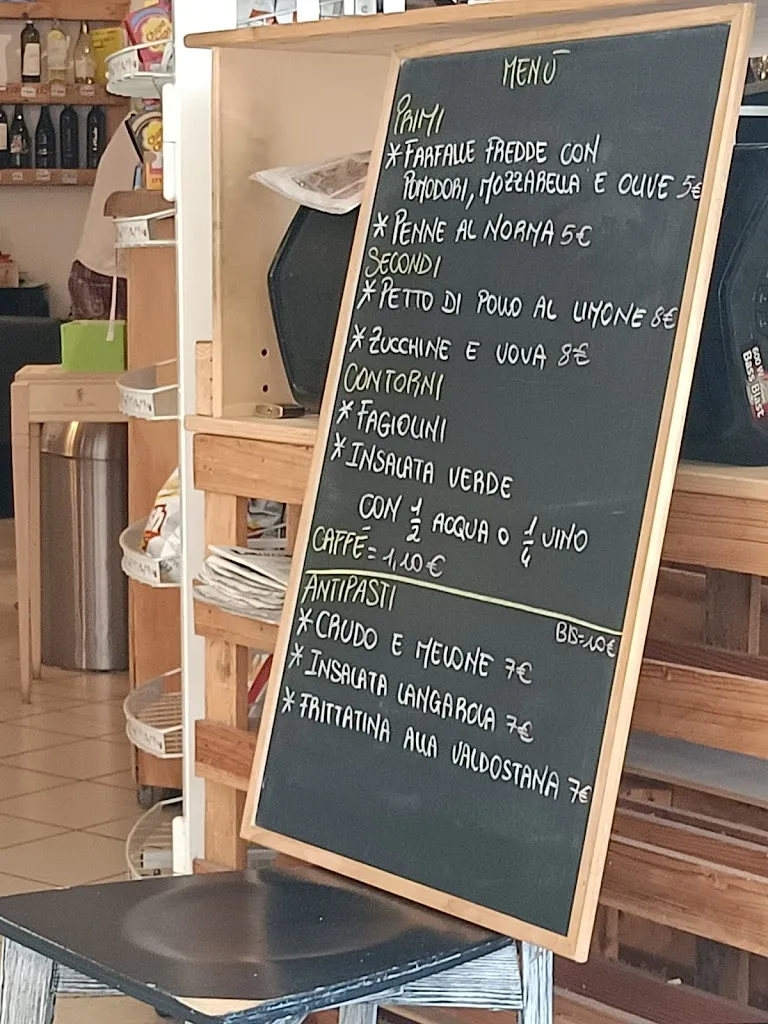 MENÙ
PRIMI
*FARFALLE FREDDE CON
POMODORI, MOZZARELLA E OLIVE 5€
*PENNE AL NORMA 5€
SECONDI
*PETTO DI POLLO AL LIMONE 8€
*ZUCCHINE E UOVA 8€
CONTORNI
*FAGIOLINI
*INSALATA VERDE
CON 1/2 ACQUA O 1/4 VINO
CAFFÉ = 1,10€
BIS=10€
ANTIPASTI
*CRUDO E MELONE 7€
*INSALATA LANGAROLA 7€
*FRITTATINA ALLA VALDOSTANA 7€
600 W
Bass Blast